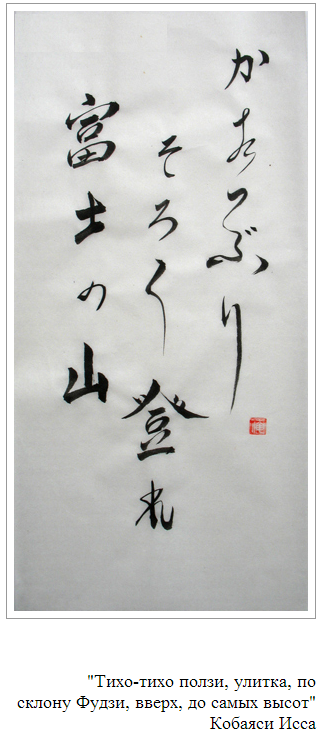 かたつぶり
そろ〱登れ
富士の山
"Тихо-тихо ползи, улитка, по
склону Фудзи, вверх, до самых высот"
Кобаяси Исса